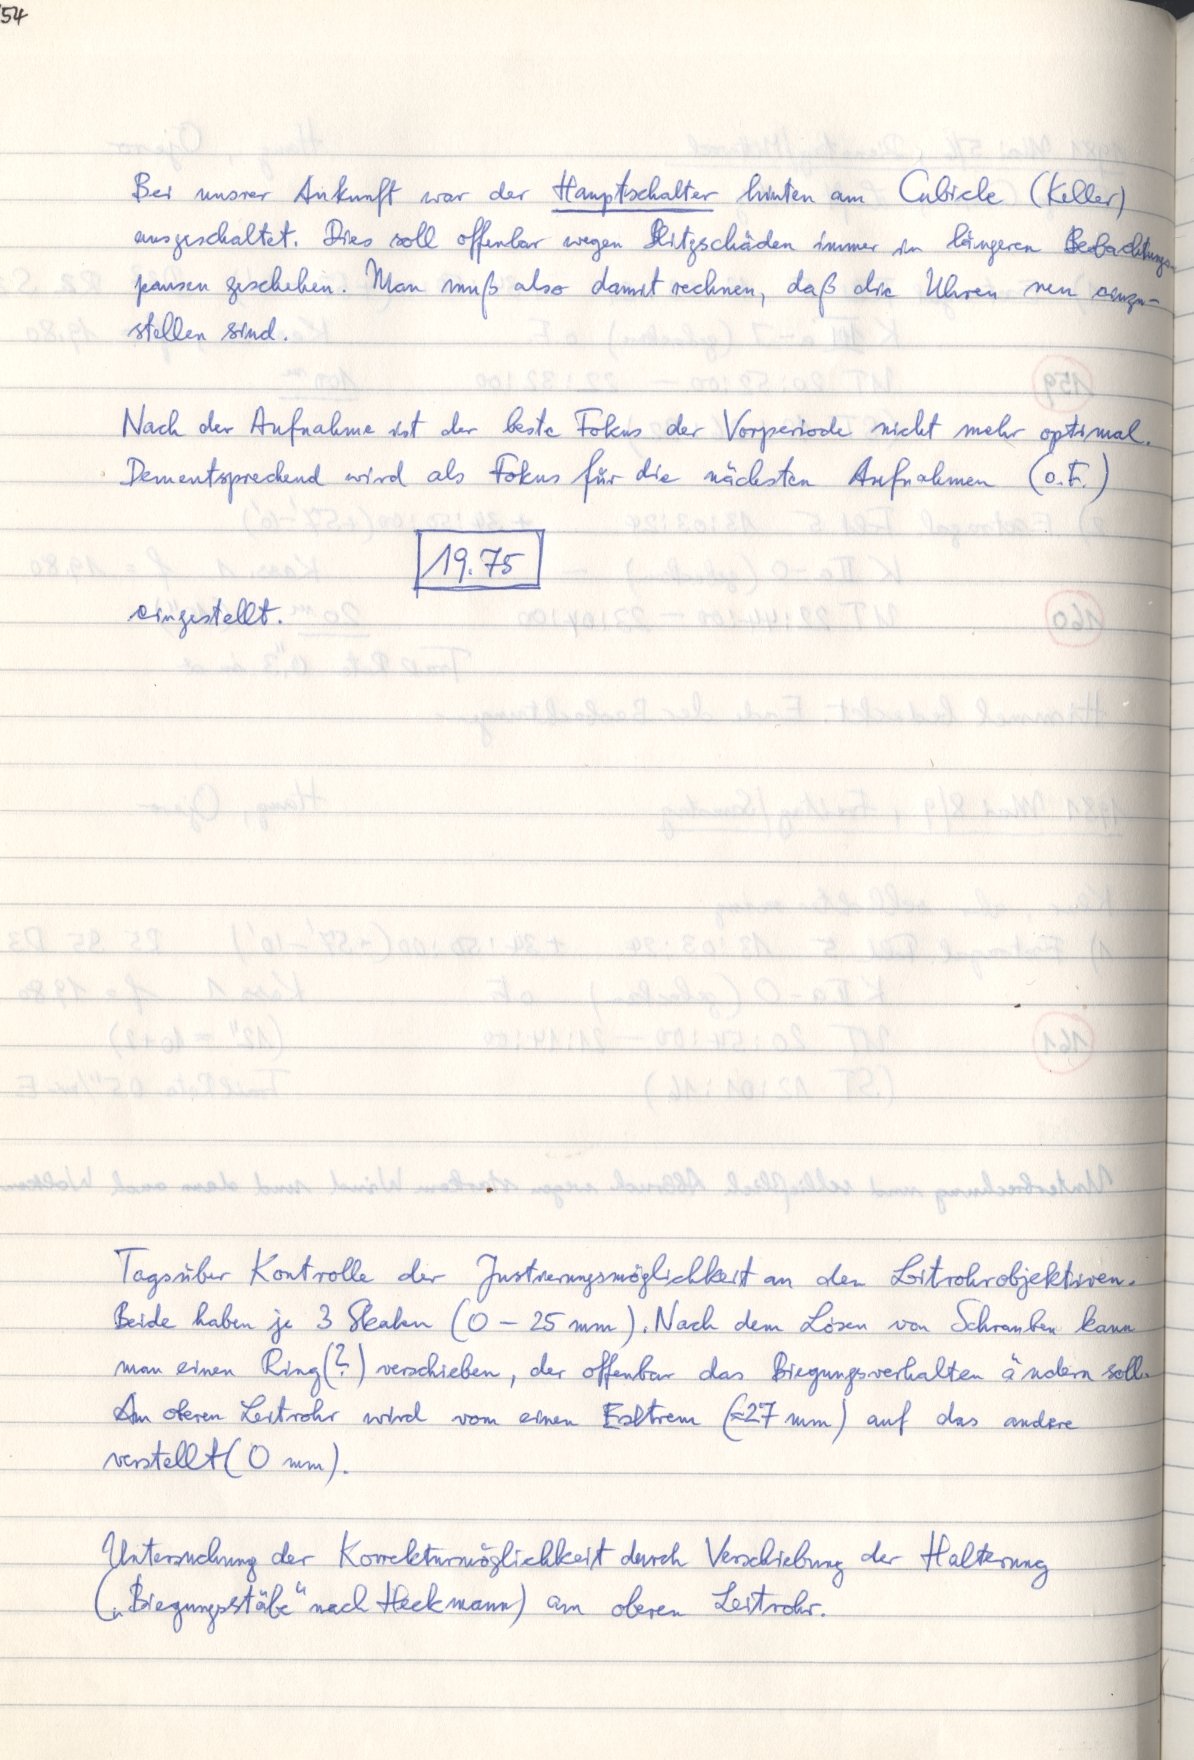 54
Bei unsrer Ankunft war der Hauptschalter hinten am Cubicle (Keller)
ausgeschaltet. Dies soll offenbar wegen Blitzschäden immer in längeren Beobachtungs-
pausen geschehen. Man muß also damit rechnen, daß die Uhren neu einzu-
stellen sind.
Nach der Aufnahme ist der beste Fokus der Vorperiode nicht mehr optimal.
Dementsprechend wird als Fokus für die nächsten Aufnahmen (o.F.)
19.75
eingestellt.
Tagsüber Kontrolle der Justierungsmöglichkeit an den Leitrohrobjektiven.
Beide haben je 3 Skalen (0 – 25 mm). Nach dem Lösen von Schrauben kann
man einen Ring(?) verschieben, der offenbar das Biegungsverhalten ändern soll.
Am oberen Leitrohr wird vom einen Extrem (≈27 mm) auf das andere
verstellt (0 mm).
Untersuchung der Korrekturmöglichkeit durch Verschiebung der Halterung
(„Biegungsstäbe“ nach Heckmann) am oberen Leitrohr.